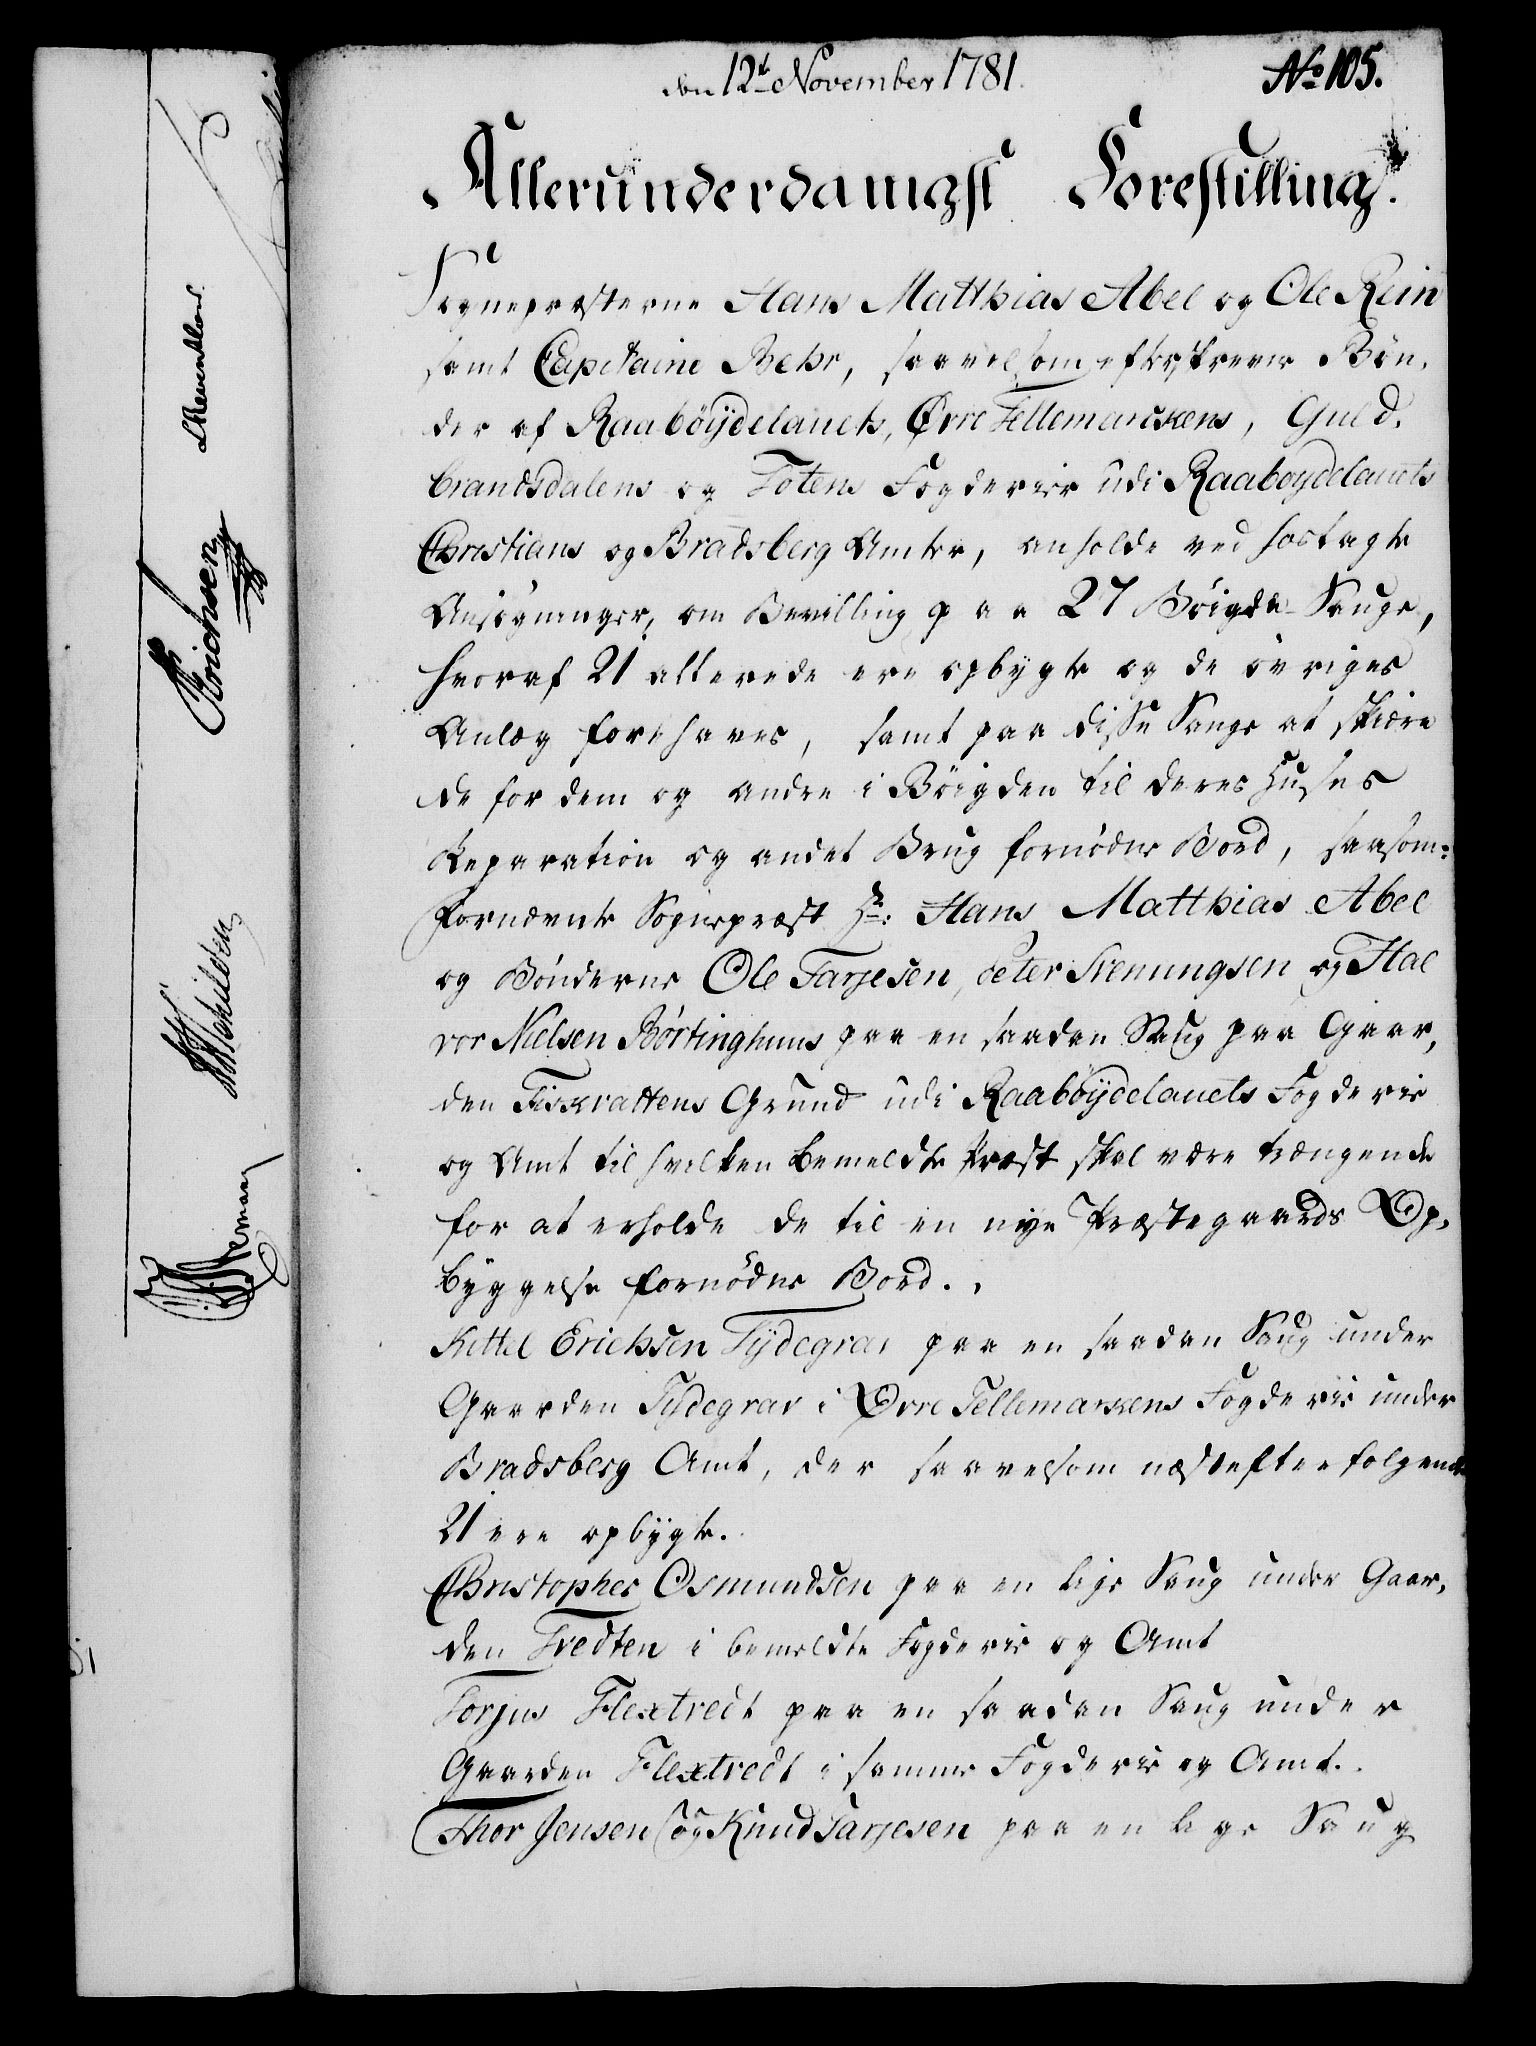 den 12te November 1781.
No 105.
Allerunderdanigst Forestilling.
Sognepræsterne Hans Matthias Abel og Ole Rein
samt Capitaine Behr, saavelsom efterskrevne Bøn,
der af Raabøÿdelauets, Øvre Tellemarckens, Guld,
brandsdalens og Totens Fogderier udi Raaboydelauets
Christians og Bradsberg Amter, anholde ved hostagte
Ansøgninger, om Bevilling paa 27 Bøigde-Sauge,
hvoraf 21 allerede ere opbygte og de øvriges
Anlæg forehaves, samt paa disse Sauge at skiære
de for dem og andre i Bøigden til deres Huses
Reparation og andet Brug fornødne Bord, saasom:
Fornævnte Sognepræst Hr: Hans Matthias Abel
og Bønderne Ole Tarjesen, Peter Svenungsen og Hal
vor Nielsen Børtinghuus paa en saadan Saug paa Gaar,
den Fiskvattens Grund udi Raabøÿdelauets Fogderie
og Amt til hvilken bemeldte Præst skal være trængende
for at erholde de til en nye Præstegaards Op,
byggelse fornødne Bord.
Kittel Erichsen Tÿdegrav paa en saadan Saug under
Gaarden Tydegrav i Øvre Tellemarkens Fogderie under
Bradsberg Amt, der saavelsom næstefterfølgende
21 ere opbygte.
Christopher Osmundsen paa en lige Saug under Gaar,
den Tvedten i bemeldte Fogderie og Amt
Torjus Flextvedt paa en saadan Saug under
Gaarden Flextvedt i samme Fogderie og Amt.
Thor Jensen og Knud Tarjesen paa en lige Saug
CReventlow.
Erichsen